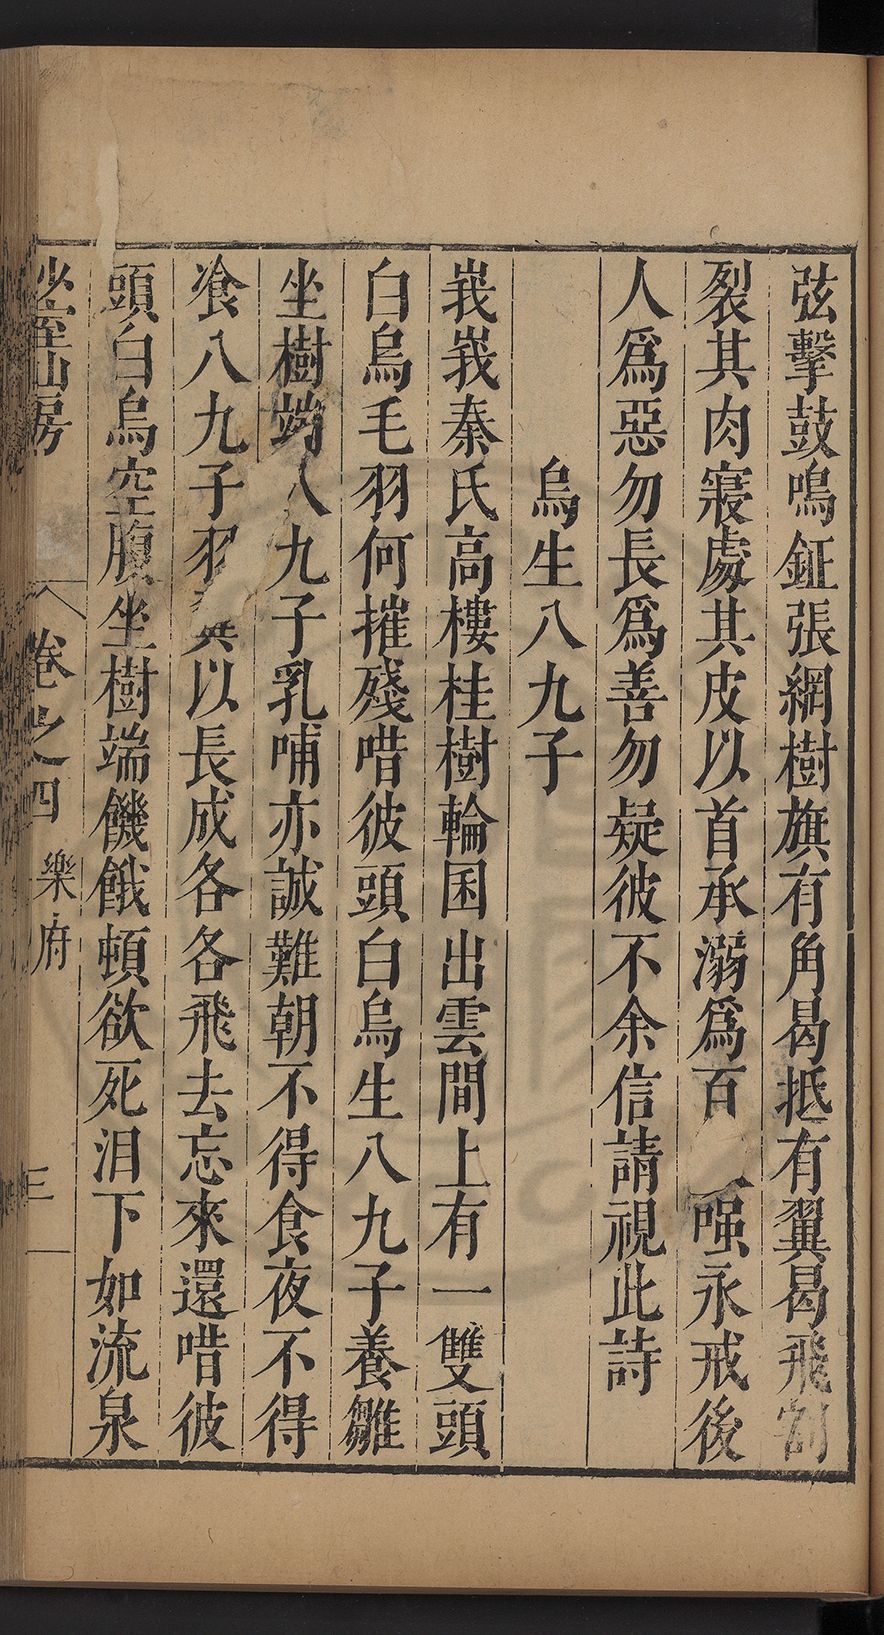 弦擊鼓鳴鉦張網樹旗有角曷抵有翼曷飛割
裂其肉寢處其皮以首承溺爲百嗢永戒後
人爲惡勿長爲善勿疑彼不余信請視此詩
烏生八九子
峩峩秦氏高樓桂樹輪囷出雲間上有一雙頭
白烏毛羽何摧殘唶彼頭白烏生八九子養雛
坐樹端八九子乳哺亦誠難朝不得食夜不得
飡八九子羽翼以長成各各飛去忘來還唶彼
頭白烏空腹坐樹端饑餓頓欲死泪下如流泉
房
卷之四
樂府
三